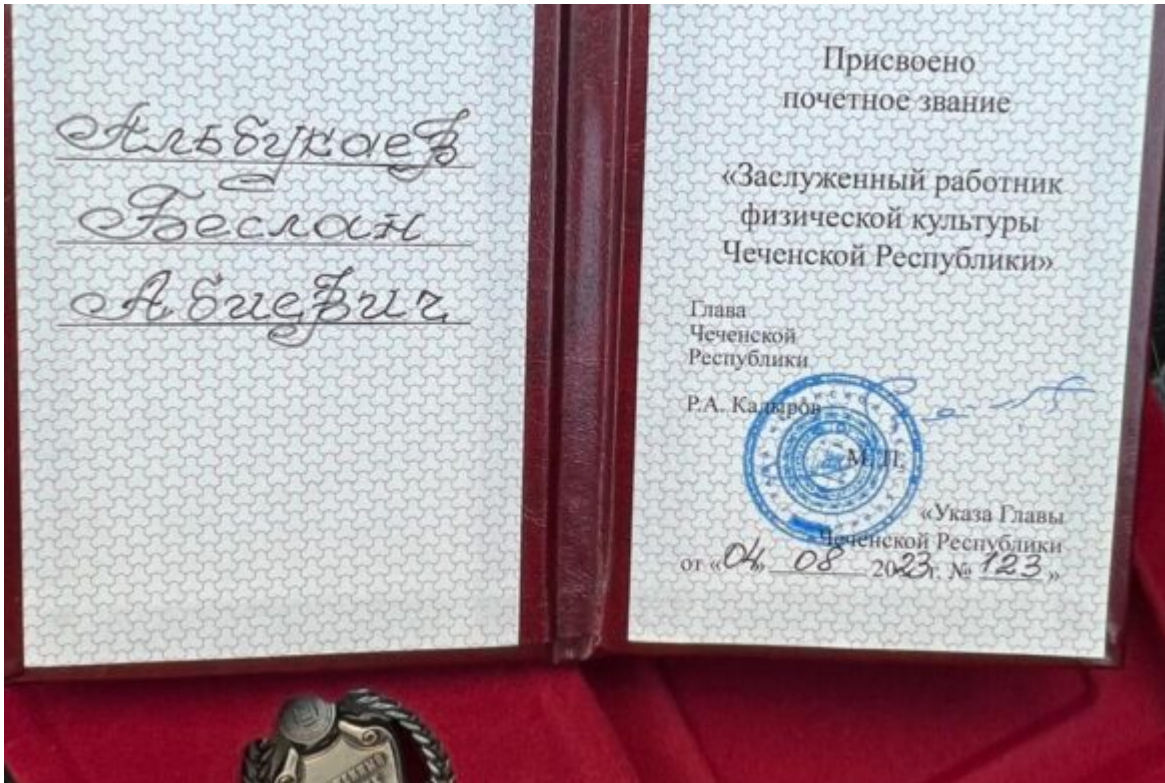 Альбукаев
Беслан
Абиевич
Присвоено
почетное звание
«Заслуженный работник
физической культуры
Чеченской Республики»
Глава
Чеченской
Республики
Р.А. Кадыров
М. П.
«Указа Главы
Чеченской Республики
от «04» 08 2023г. № 123»